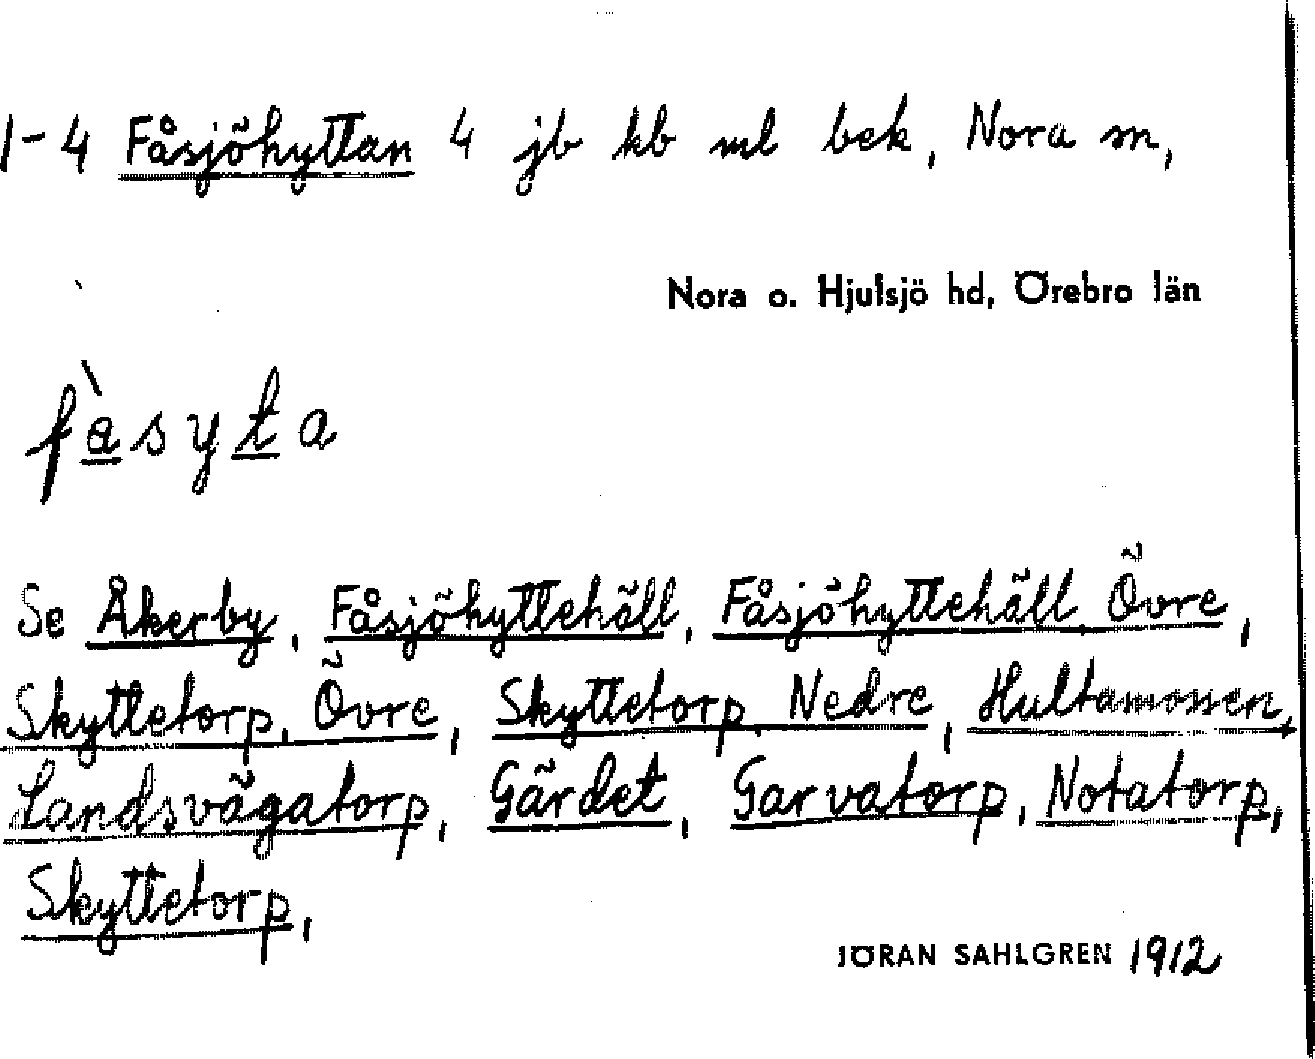 1-4 Fåsjöhyttan 4 jb kb ml bek, Nora sn,
Nora o. Hjulsjö hd, Örebro län
fàsyta
Se Åkerby, Fåsjöhyttehäll, Fåsjöhyttehäll, Övre,
Skyttetorp, Övre, Skyttetorp, Nedre, Hultamossen,
Landsvägatorp, Gärdet, Garvatorp, Notatorp,
Skyttetorp,
JÖRAN SAHLGREN 1912